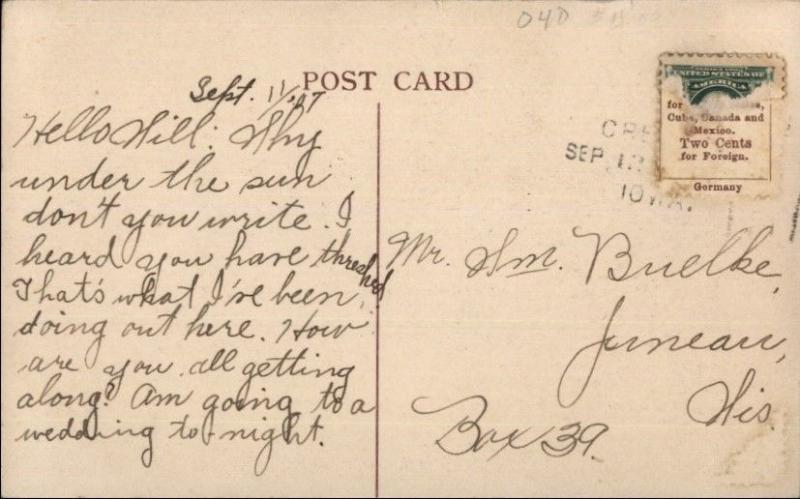 040
POST CARD
Sept. 11/07
Hello Will: Why
under the sun
don't you write. I
heard you have threshed
That's what I've been
doing out here. How
are you all getting
along? Am going to a
wedding to-night.
UNITED STATES OF
AMERICA
for
Cuba, Canada and
Mexico.
Two Cents
for Foreign.
Germany
SEP 12
IOWA.
Mr. Wm. Buelke,
Juneau,
Wis.
Box 39.